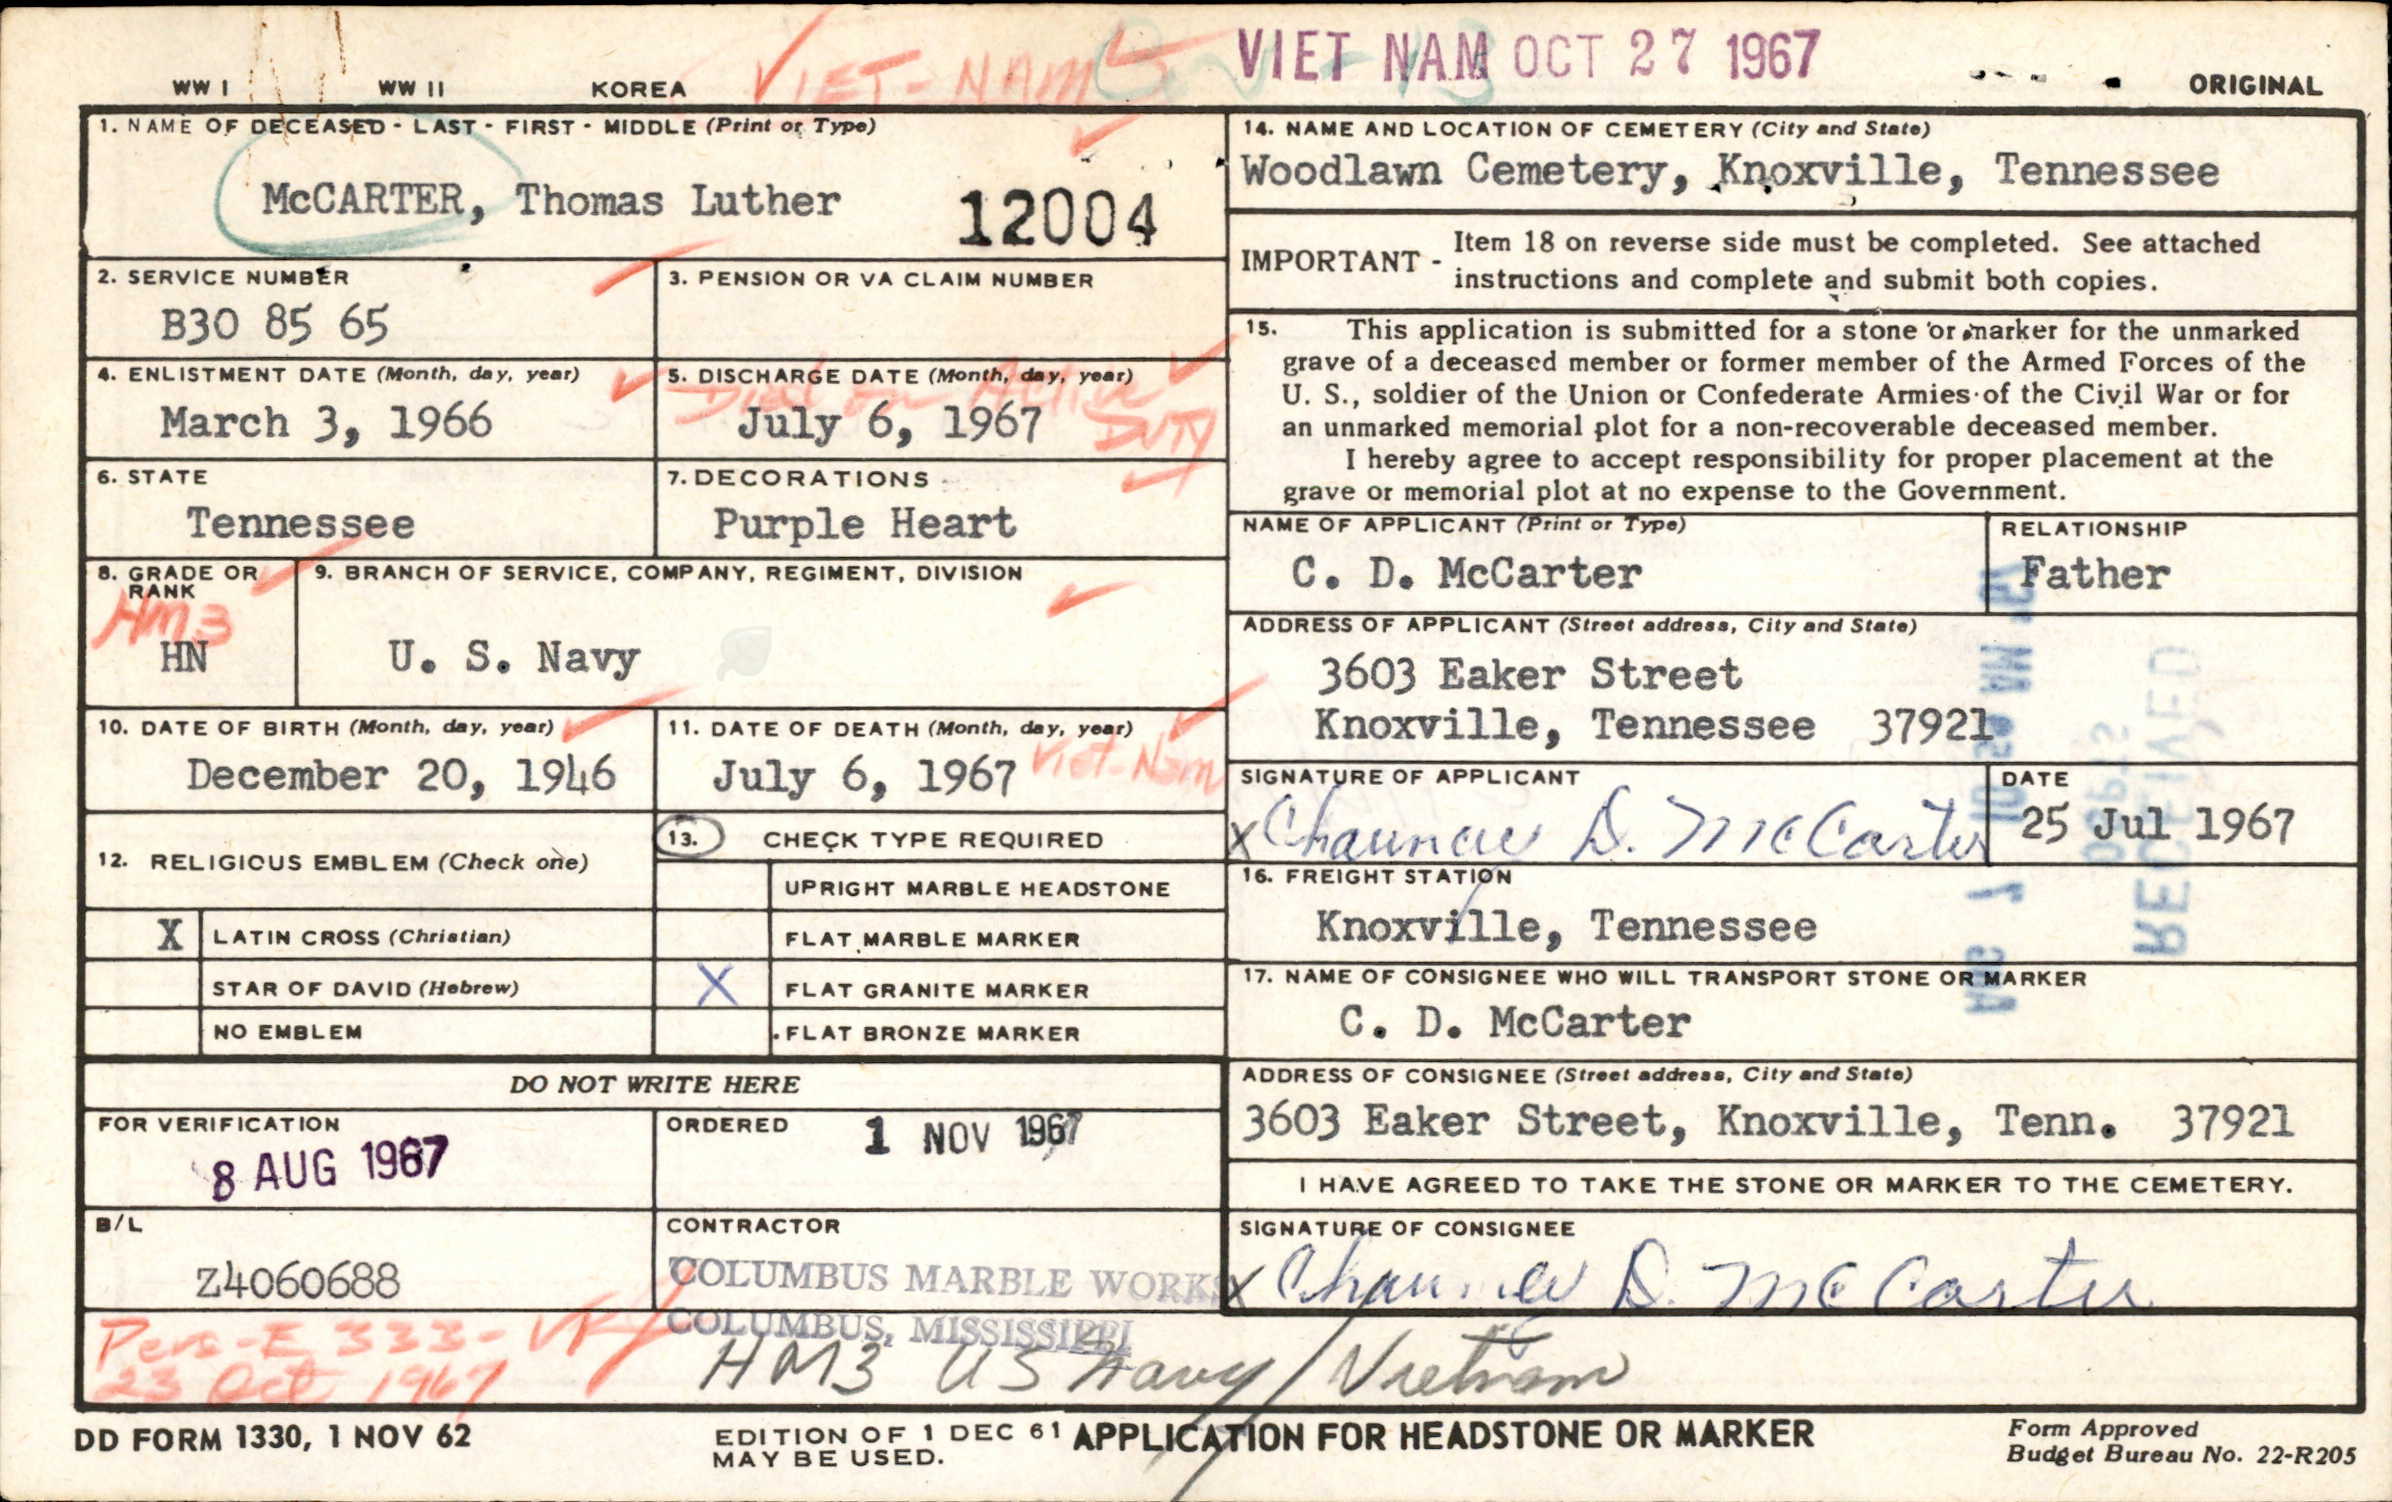 VIET NAM OCT 27 1967
WW I WW II KOREA VIET-NAM ORIGINAL
1. NAME OF DECEASED - LAST - FIRST - MIDDLE (Print or Type)
McCARTER, Thomas Luther 12004
2. SERVICE NUMBER
B30 85 65
3. PENSION OR VA CLAIM NUMBER
4. ENLISTMENT DATE (Month, day, year)
March 3, 1966
5. DISCHARGE DATE (Month, day, year)
Died on Active
July 6, 1967 DUTY
6. STATE
Tennessee
7. DECORATIONS
Purple Heart
8. GRADE OR
RANK
HM3
HN
9. BRANCH OF SERVICE, COMPANY, REGIMENT, DIVISION
U. S. Navy
10. DATE OF BIRTH (Month, day, year)
December 20, 1946
11. DATE OF DEATH (Month, day, year)
July 6, 1967 Viet-Nam
12. RELIGIOUS EMBLEM (Check one)
X LATIN CROSS (Christian)
STAR OF DAVID (Hebrew)
NO EMBLEM
13. CHECK TYPE REQUIRED
UPRIGHT MARBLE HEADSTONE
FLAT MARBLE MARKER
X FLAT GRANITE MARKER
FLAT BRONZE MARKER
DO NOT WRITE HERE
FOR VERIFICATION
8 AUG 1967
ORDERED
1 NOV 1967
B/L
Z4060688
CONTRACTOR
COLUMBUS MARBLE WORKS
COLUMBUS, MISSISSIPPI
14. NAME AND LOCATION OF CEMETERY (City and State)
Woodlawn Cemetery, Knoxville, Tennessee
IMPORTANT - Item 18 on reverse side must be completed. See attached
instructions and complete and submit both copies.
15. This application is submitted for a stone or marker for the unmarked
grave of a deceased member or former member of the Armed Forces of the
U. S., soldier of the Union or Confederate Armies of the Civil War or for
an unmarked memorial plot for a non-recoverable deceased member.
I hereby agree to accept responsibility for proper placement at the
grave or memorial plot at no expense to the Government.
NAME OF APPLICANT (Print or Type)
C. D. McCarter
RELATIONSHIP
Father
ADDRESS OF APPLICANT (Street address, City and State)
3603 Eaker Street
Knoxville, Tennessee 37921
SIGNATURE OF APPLICANT
X Chauncey D. McCarter
DATE
25 Jul 1967
RECEIVED
16. FREIGHT STATION
Knoxville, Tennessee
17. NAME OF CONSIGNEE WHO WILL TRANSPORT STONE OR MARKER
C. D. McCarter
ADDRESS OF CONSIGNEE (Street address, City and State)
3603 Eaker Street, Knoxville, Tenn. 37921
I HAVE AGREED TO TAKE THE STONE OR MARKER TO THE CEMETERY.
SIGNATURE OF CONSIGNEE
X Chauncey D. McCarter
Pers-E 333-
23 Oct 1967
HM3 US Navy/Vietnam
DD FORM 1330, 1 NOV 62
EDITION OF 1 DEC 61
MAY BE USED.
APPLICATION FOR HEADSTONE OR MARKER
Form Approved
Budget Bureau No. 22-R205